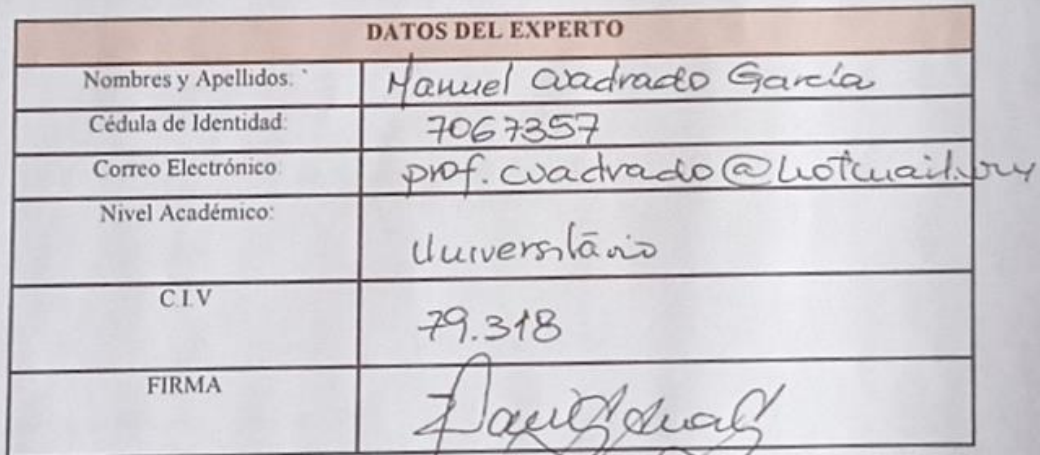 DATOS DEL EXPERTO
Nombres y Apellidos: Manuel Cuadrado García
Cédula de Identidad: 7067357
Correo Electrónico: prof.cuadrado@hotmail.com
Nivel Académico:
Universitário
C.I.V
79.318
FIRMA